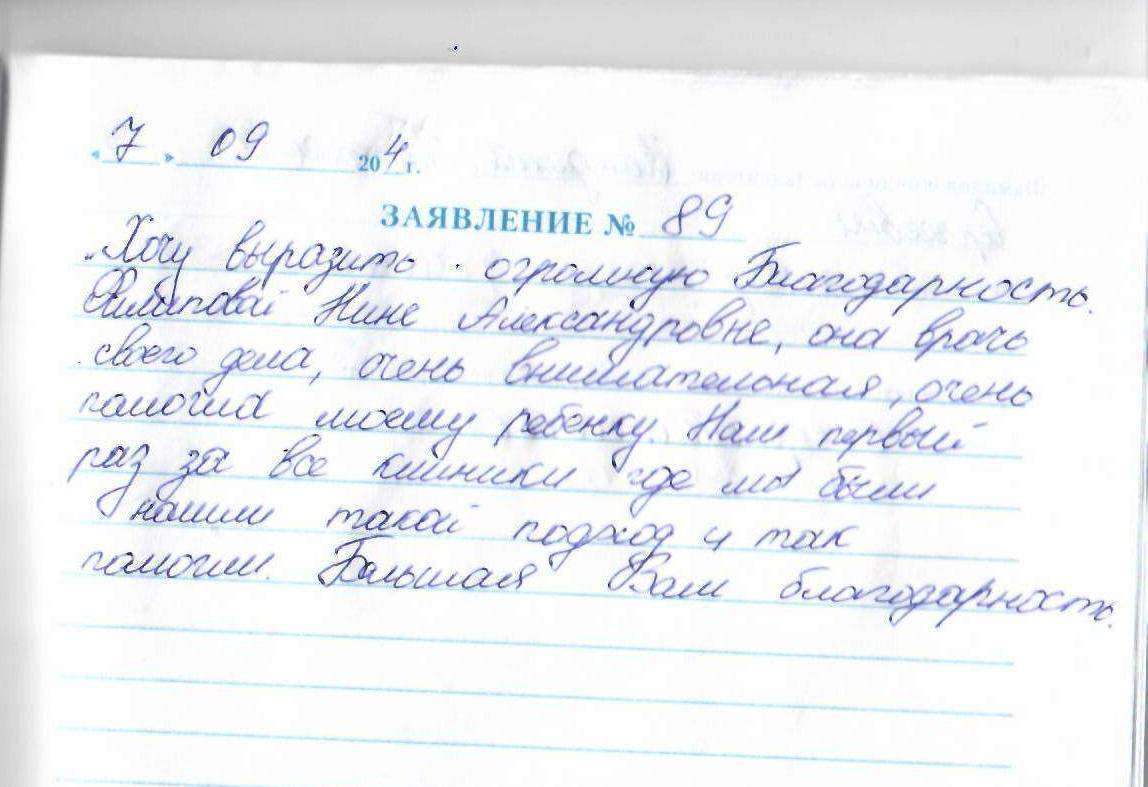 «7» 09 204г.
ЗАЯВЛЕНИЕ № 89
Хочу выразить огромную Благодарность.
Филиповой Нине Александровне, она врачь
своего дела, очень внимательная, очень
помогла моему ребенку. Нам первый
раз за все клиники где мы были
нашли такой подход и так
помогли. Большая Вам благодарность.